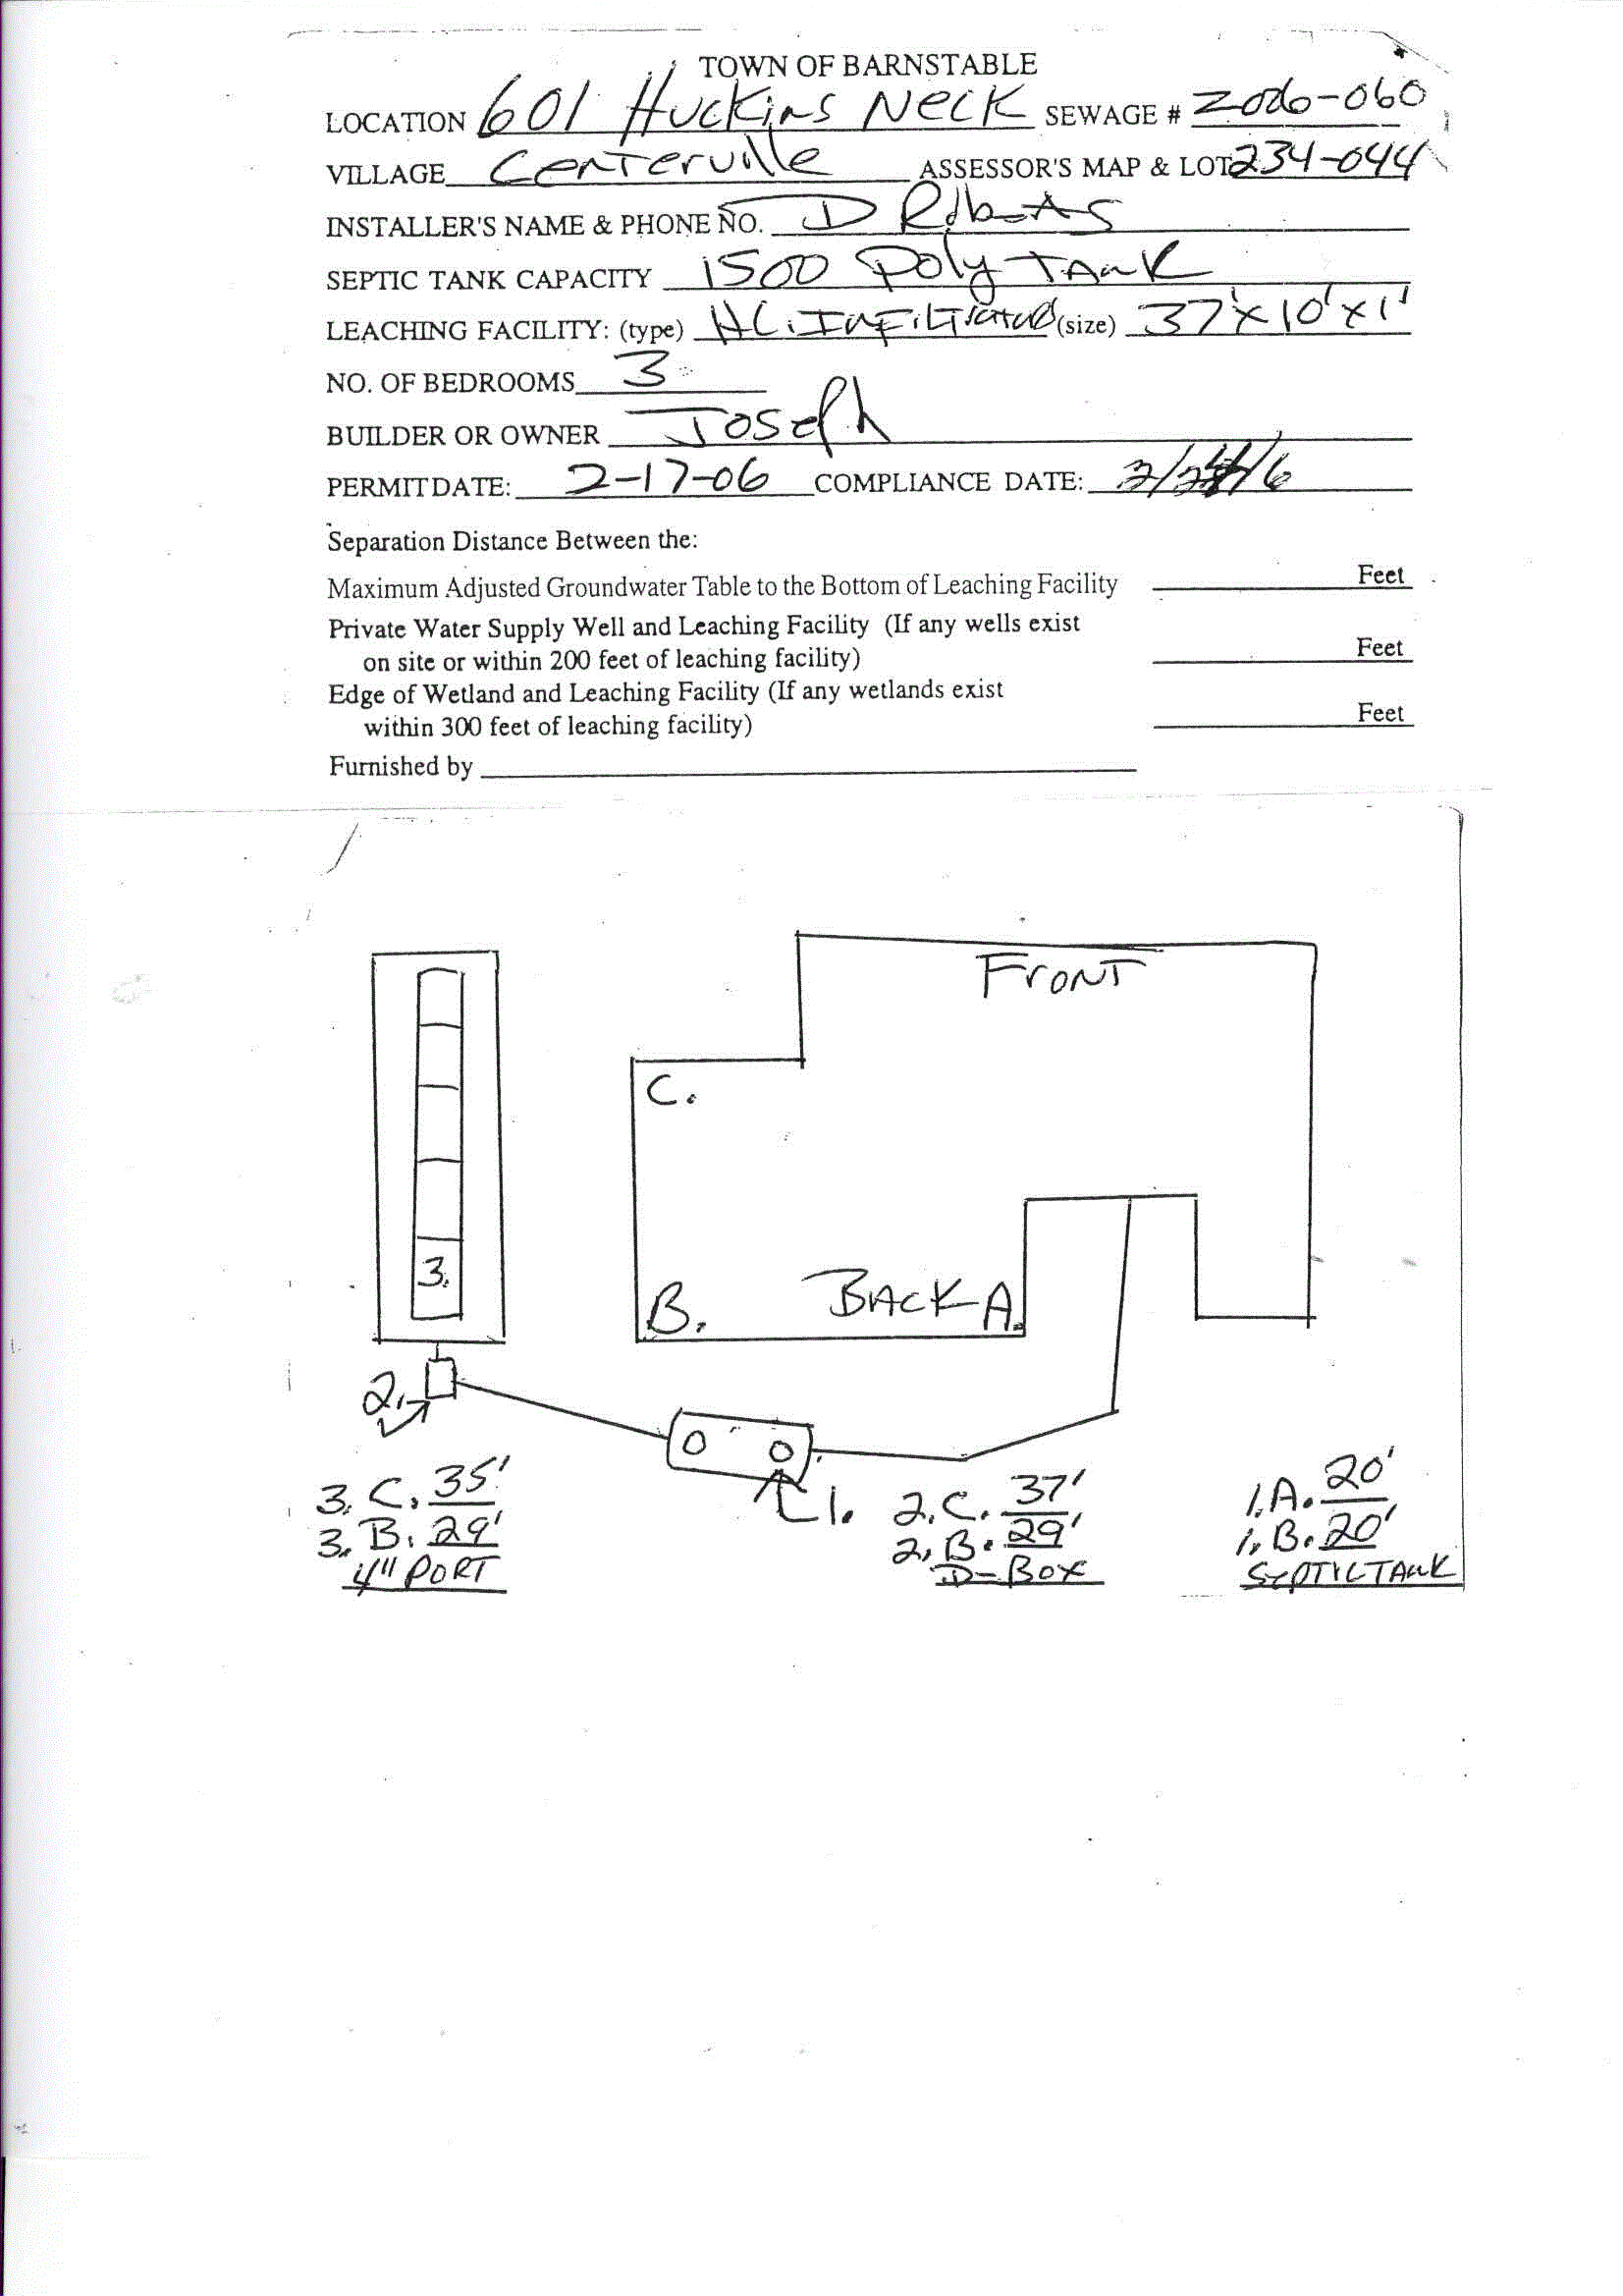 TOWN OF BARNSTABLE
LOCATION 601 Huckins Neck SEWAGE # 2006-060
VILLAGE Centerville ASSESSOR'S MAP & LOT 234-044
INSTALLER'S NAME & PHONE NO. D
SEPTIC TANK CAPACITY 1500 Poly Tank
LEACHING FACILITY: (type) (size) 37'x10'x1'
NO. OF BEDROOMS 3
BUILDER OR OWNER Joseph
PERMIT DATE: 2-17-06 COMPLIANCE DATE:
Separation Distance Between the:
Maximum Adjusted Groundwater Table to the Bottom of Leaching Facility Feet
Private Water Supply Well and Leaching Facility (If any wells exist
on site or within 200 feet of leaching facility) Feet
Edge of Wetland and Leaching Facility (If any wetlands exist
within 300 feet of leaching facility) Feet
Furnished by
FRONT
C.
3.
B. BACK A.
2.
1.
3. C. 35'
3. B. 29'
4" PORT
2. C. 37'
2. B. 29'
D-BOX
1. A. 20'
1. B. 20'
SEPTIC TANK